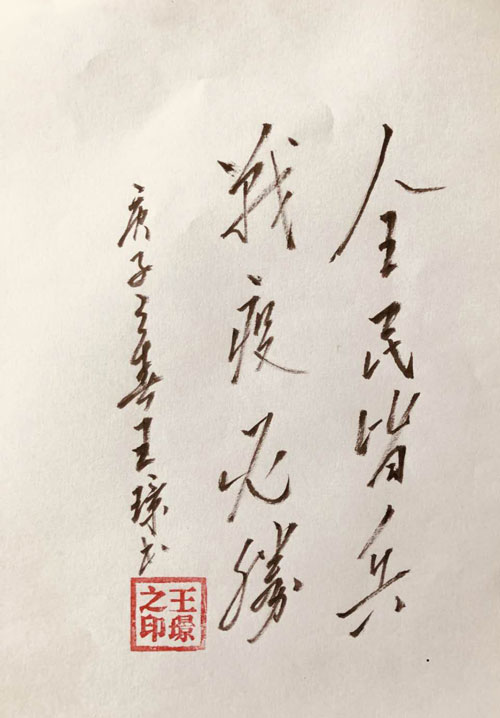 全民皆兵
戰疫必勝
庚子之春王璟书
王璟之印